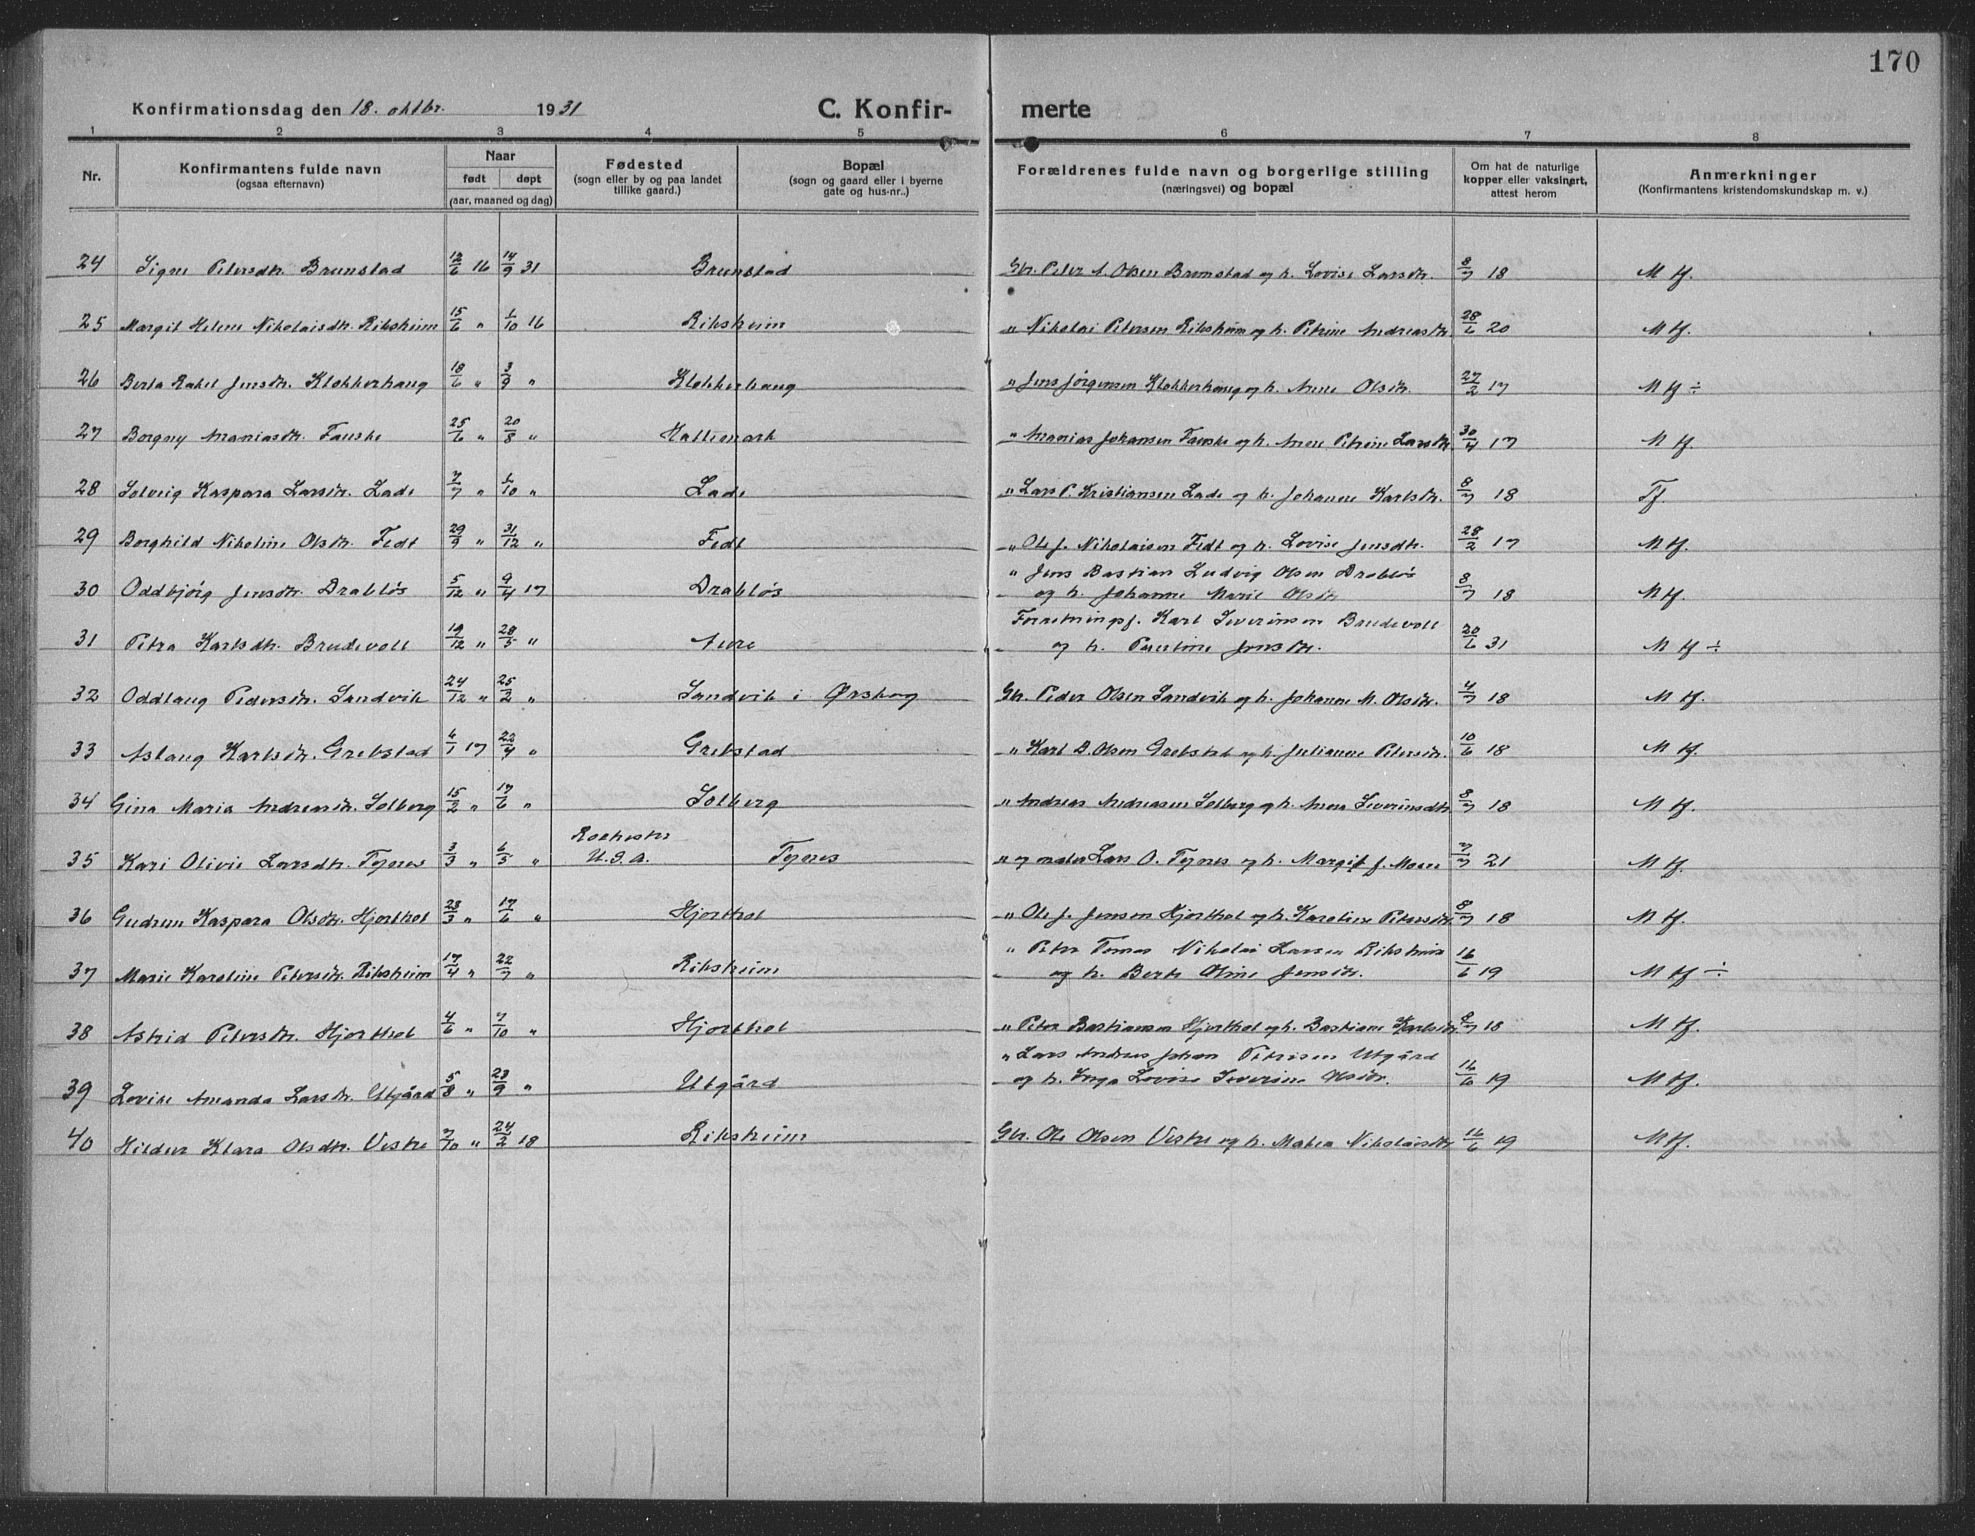 170
Konfirmationsdag den 18. oktbr. 1931 C. Konfir- merte
1 2 3 4 5 6 7 8
Nr. Konfirmantens fulde navn (ogsaa efternavn) Naar født døpt (aar, maaned og dag) Fødested (sogn eller by og paa landet tillike gaard.) Bopæl (sogn og gaard eller i byerne gate og hus-nr..) Forældrenes fulde navn og borgerlige stilling (næringsvei) og bopæl Om hat de naturlige kopper eller vaksinert, attest herom Anmerkninger (Konfirmantens kristendomskundskap m. v.)
24 Signe Petersdtr. Brunstad 12/6 16 14/9 31 Brunstad Gbr. Peter A. Olsen Brunstad og h. Lovise Larsdtr. 8/7 18 M tf.
25 Margit Helene Nikolaisdtr. Riksheim 15/6 " 1/10 16 Riksheim " Nikolai Petersen Riksheim og h. Petrine Andreasdtr. 28/6 20 M tf.
26 Berta Rakel Jensdtr. Klokkerhaug 18/6 " 3/9 " Klokkerhaug " Jens Jørgensen Klokkerhaug og h. Anne Olsdtr. 27/2 17 M tf ÷
27 Borgny Ananiasdtr. Fauske 25/6 " 20/8 " Hattemark " Ananias Johansen Fauske og h. Anne Petrine Larsdtr. 30/4 17 M tf.
28 Solveig Kaspara Larsdtr. Lade 7/7 " 1/10 " Lade " Lars P. Kristiansen Lade og h. Johanne Karlsdtr. 8/7 18 Tf.
29 Borghild Nikoline Olsdtr. Fedt 29/9 " 31/12 " Fedt " Ole J. Nikolaisen Fedt og h. Lovise Jensdtr. 28/2 17 M tf.
30 Oddbjørg Jensdtr. Drabløs 5/12 " 9/4 17 Drabløs " Jens Bastian Ludvig Olsen Drabløs
og h. Johanne Marie Olsdtr. 8/7 18 M tf.
31 Petra Karlsdtr. Brudevoll 19/12 " 28/5 " Aure Forretningsf. Karl Severinsen Brudevoll
og h. Pauline Jensdtr. 20/6 31 M tf ÷
32 Oddlaug Pedersdtr. Sandvik 24/12 " 25/2 " Sandvik i Ørskog Gbr. Peder Olsen Sandvik og h. Johanne M. Olsdtr. 4/7 18 M tf.
33 Aslaug Karlsdtr. Grebstad 6/1 17 22/4 " Grebstad " Karl B. Olsen Grebstad og h. Julianne Petersdtr. 10/6 18 M tf.
34 Gina Maria Andreasdtr. Solberg 15/2 " 17/6 " Solberg " Andreas Andreasen Solberg og h. Anna Severinsdtr. 8/7 18 M tf.
35 Kari Olivie Larsdtr. Tynes 3/3 " 6/5 " Rochester
U.S.A. Tynes " og maler Lars O. Tynes og h. Margit J. Moen 7/7 21 M tf.
36 Gudrun Kaspara Olsdtr. Hjorthol 28/3 " 17/6 " Hjorthol " Ole J. Jensen Hjorthol og h. Karoline Petersdtr. 8/7 18 M tf.
37 Marie Karoline Petersdtr. Riksheim 17/4 " 22/7 " Riksheim " Peter Tomas Nikolai Larsen Riksheim
og h. Berte Oline Jensdtr. 16/6 19 M tf ÷
38 Astrid Petersdtr. Hjorthol 4/6 " 7/10 " Hjorthol " Peter Bastiansen Hjorthol og h. Bastiane Karlsdtr. 8/7 18 M tf.
39 Lovise Amanda Larsdtr. Utgård 5/8 " 23/9 " Utgård " Lars Andreas Johan Petersen Utgård
og h. Inga Lovise Severine Olsdtr. 16/6 19 M tf.
40 Hildur Klara Olsdtr. Vestre 7/10 " 24/2 18 Riksheim Gbr. Ole Olsen Vestre og h. Matea Nikolaisdtr. 16/6 19 M tf.